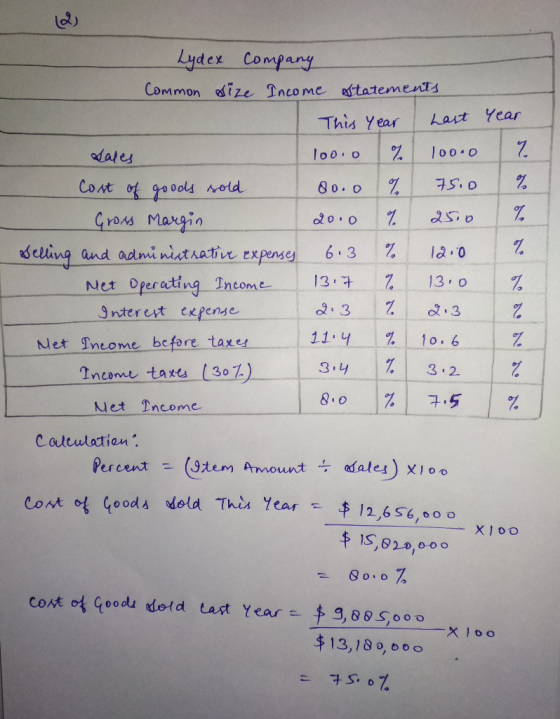 (2)
Lydex Company
Common Size Income Statements
This Year Last Year
Sales 100.0 % 100.0 %
Cost of goods sold 80.0 % 75.0 %
Gross Margin 20.0 % 25.0 %
Selling and administrative expenses 6.3 % 12.0 %
Net Operating Income 13.7 % 13.0 %
Interest expense 2.3 % 2.3 %
Net Income before taxes 11.4 % 10.6 %
Income taxes (30%) 3.4 % 3.2 %
Net Income 8.0 % 7.5 %
Calculation:
Percent = (Item Amount ÷ Sales) X100
Cost of Goods Sold This Year = $ 12,656,000
X100
$ 15,820,000
= 80.0 %
Cost of Goods Sold Last Year = $ 9,885,000
X 100
$13,180,000
= 75.0%